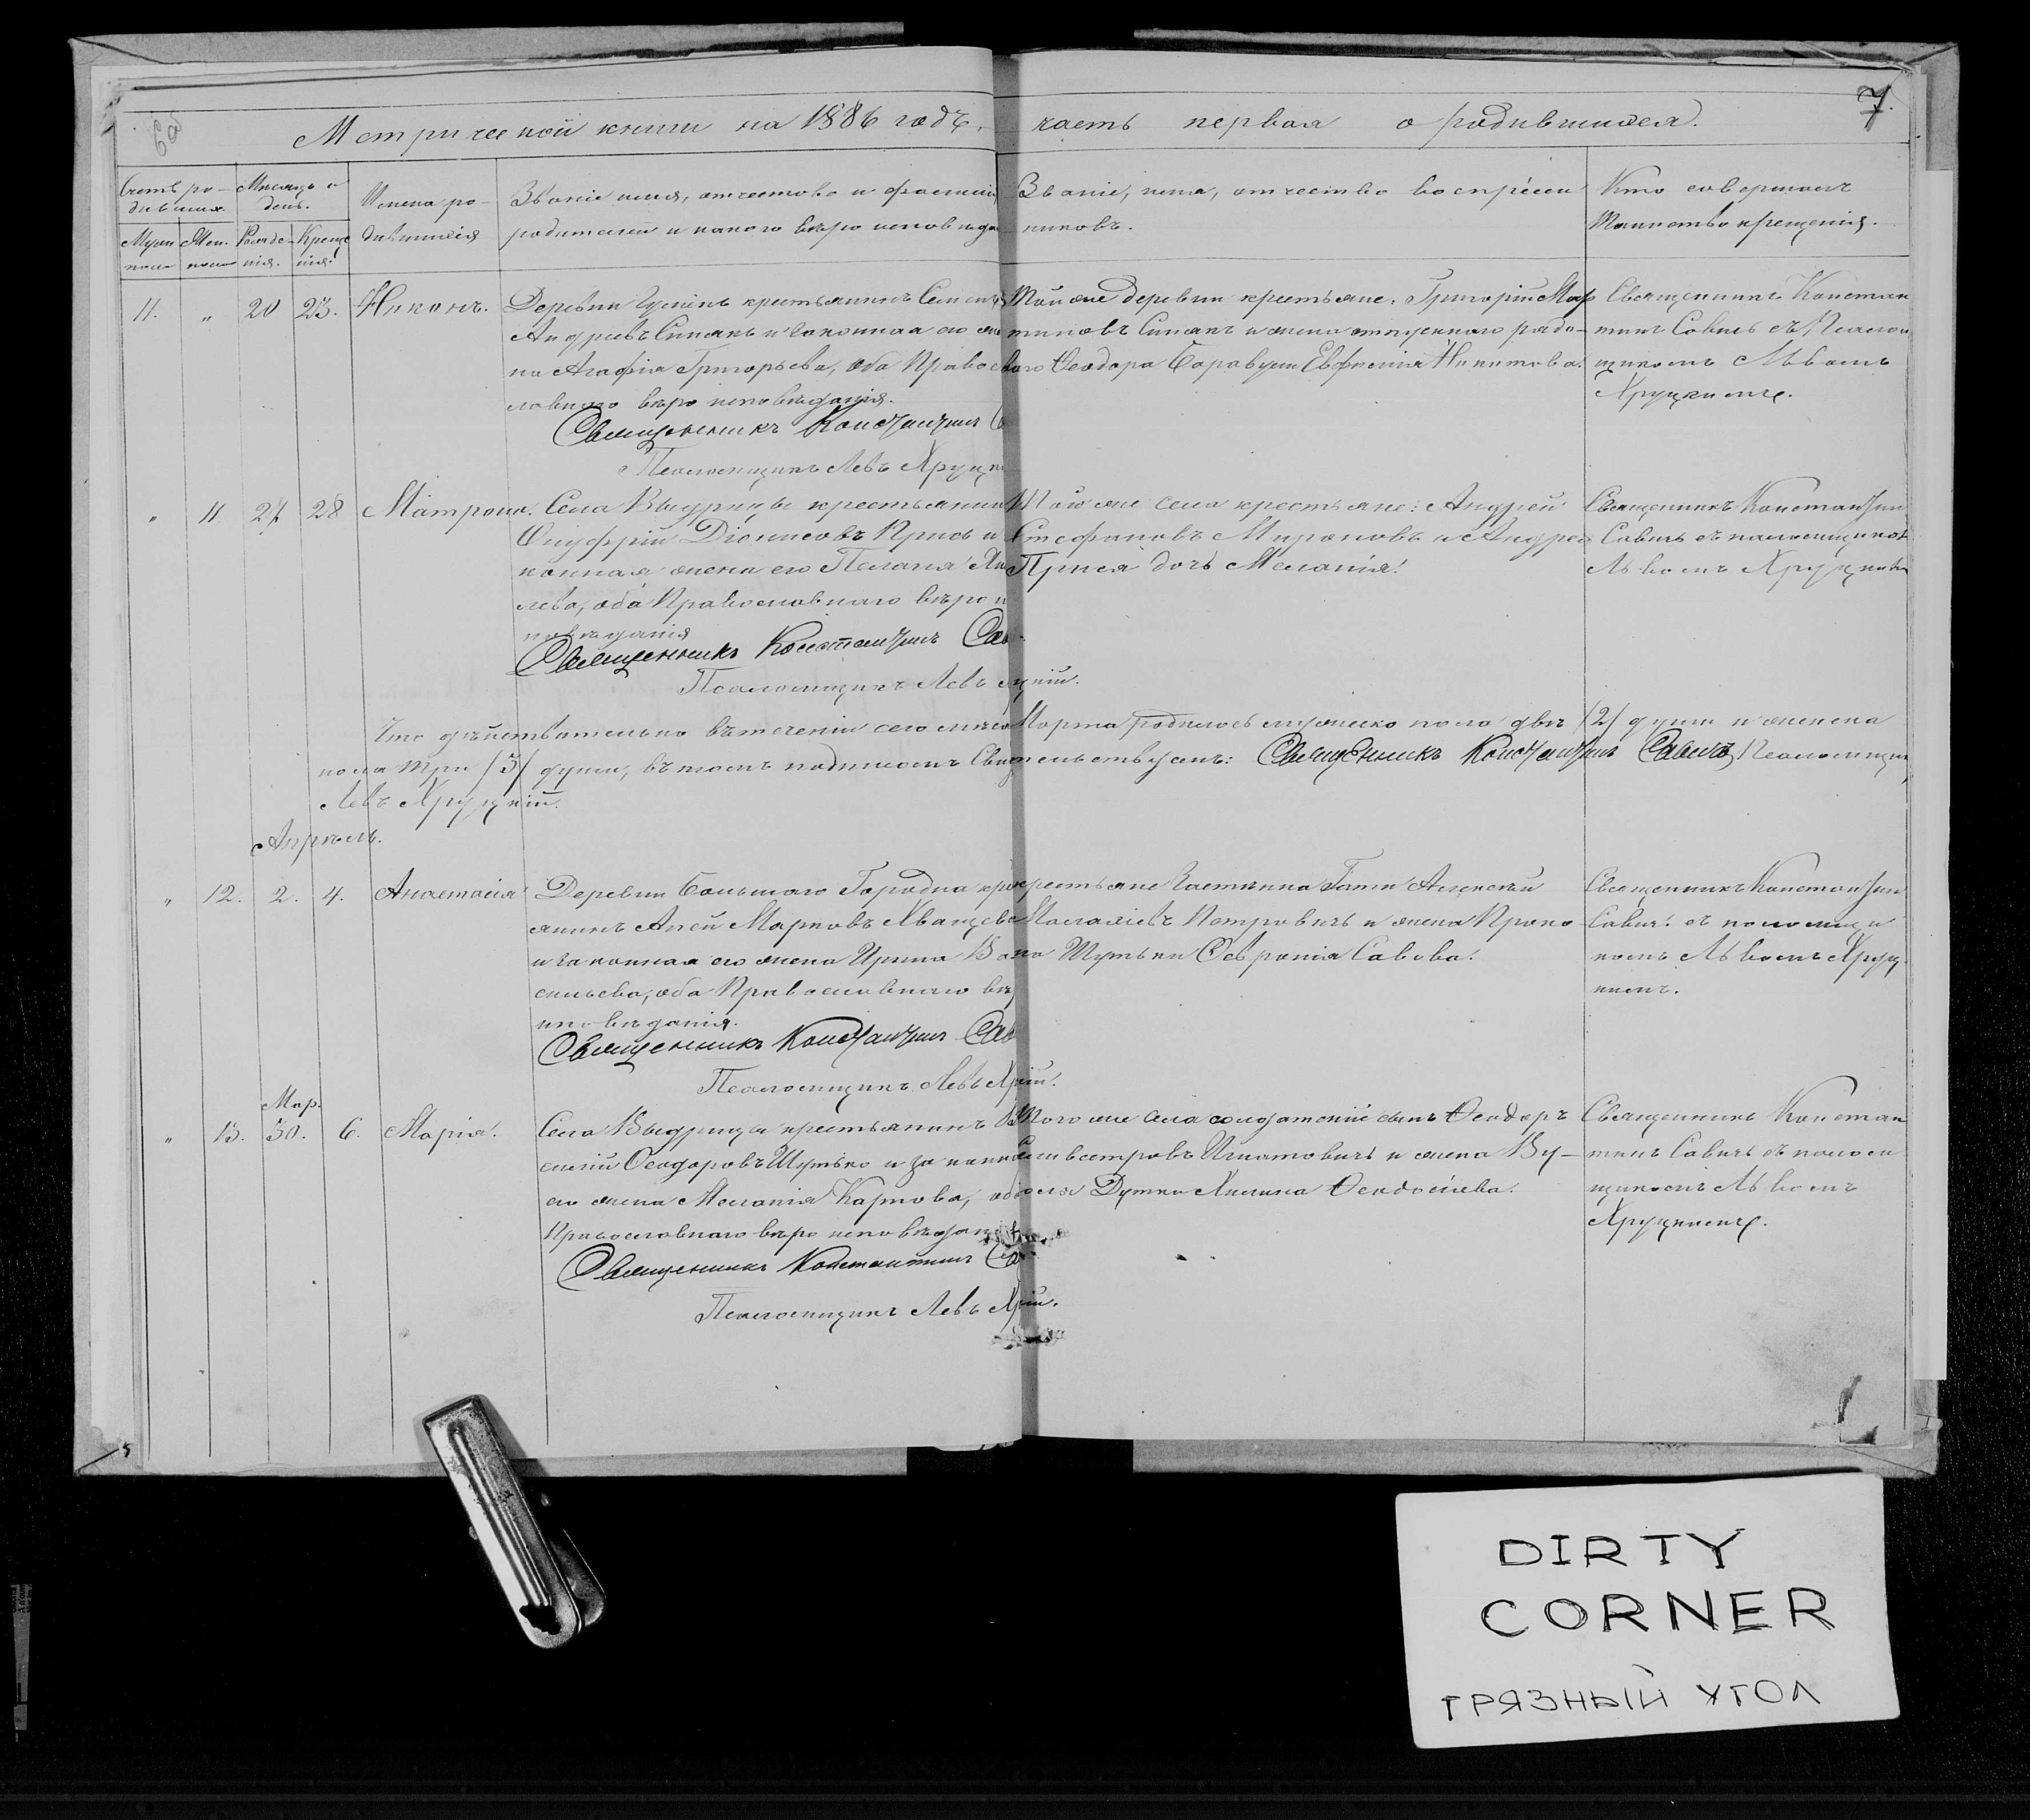 6об
7.
Метрической книги на 1886 годъ, часть первая о родившихся.
Счетъ ро-
дившихся.
Мѣсяцъ и
день.
Имена ро-
дившихся
Званіе имя, отчество и фамилія
родителей и какого вѣро исповѣда
Званіе, имя, отчество воспріем
никовъ.
Кто совершалъ
таинство крещенія.
Муж
ноло
Жен.
ноло
Рожде-
нія.
Креще
нія.
11. " 20 23. Никонъ.
крестьянинъ Семенъ
Андреевъ Синякъ и законная его же
на Агафія Григорьева, оба Правос
лавнаго вѣро исповѣданія.
Священникъ Константинъ
Псаломщикъ Левъ Хруцк
Той же деревни крестьяне: Григорій Мар
тиновъ Синякъ и жена отпускного рядо-
ваго Ѳеодора Евфимія Никитова.
Священникъ Констан
тинъ Савичъ съ Псалом
щикомъ Львомъ
Хруцкимъ.
" 11 27 28 Матрона.
Села Выдрицы крестьянин
Онуфрій Діонисовъ Прись и
конная жена его Пелагія
лева, оба Православнаго вѣро и
повѣданія
Священникъ Константинъ Сав
Псаломщикъ Левъ цкій.
Того же села крестьяне: Андрей
Стефановъ Мироновъ и Андрея
Прися дочь Меланія.
Священникъ Константин
Савичъ съ псаломщиком
Львомъ Хруцким
Что дѣйствительно въ теченіи сего мѣсяца Марта родилось мужеско пола двѣ /2/ души и женска
пола три /3/ души, въ томъ подписомъ Свидѣтельствуемъ: Священникъ Константинъ Савичъ, Псаломщик
Левъ Хруцкій.
Апрѣль.
" 12. 2. 4. Анастасія
Деревни Большаго Городна кре
янинъ Марковъ
и законная его жена Ирина Ва
сильева, оба Православнаго вѣ
исповѣданія.
Священникъ Константинъ Сав
Псаломщикъ Левъ Хр кій.
крестьяне Гати Алексѣй
Петровичъ и жена Проко
па Шутьки Февронія Савова.
Священникъ Константин
Савичъ съ псаломщи
комъ Львомъ Хруц
кимъ.
Мар.
" 13. 30. 6. Марія.
Села Выдрицы крестьянинъ В
силій Ѳеодоровъ Шутько и законна
его жена Меланія Карпова, оба
Православнаго вѣро исповѣдані
Священникъ Константинъ Са
Псаломщикъ Левъ Хр кій.
Того же села солдатскій сынъ Ѳеодоръ
Сильвестровъ Игнатовичъ и жена Ву-
Дутки Акилина Ѳеодосіева.
Священникъ Констан
тинъ Савичъ съ псалом
щикомъ Львомъ
Хруцкимъ.
DIRTY
CORNER
ГРЯЗНЫЙ УГОЛ